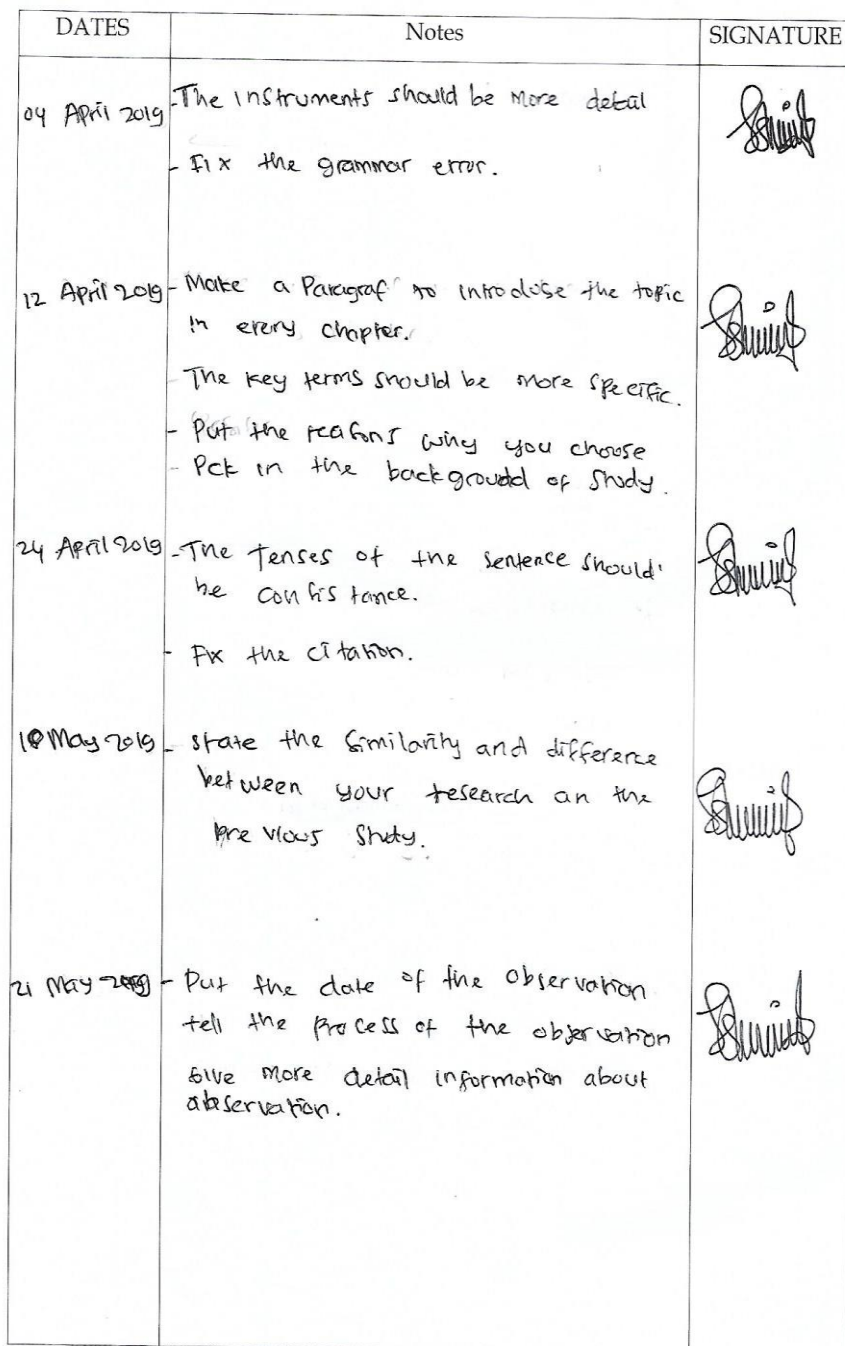 DATES Notes SIGNATURE
04 April 2019 - The instruments should be more detail
- Fix the grammar error.
12 April 2019 - Make a Paragraf to introduse the topic
in every chapter.
The key terms should be more specific.
- Put the reasons why you choose
- Pck in the backgroudd of study.
24 April 2019 - The Tenses of the sentence should
be consistance.
- Fix the citation.
May 2019 - State the similarity and difference
between your research an the
previous study.
21 May 2019 - Put the date of the observation
tell the process of the observation
Give more detail information about
abservation.